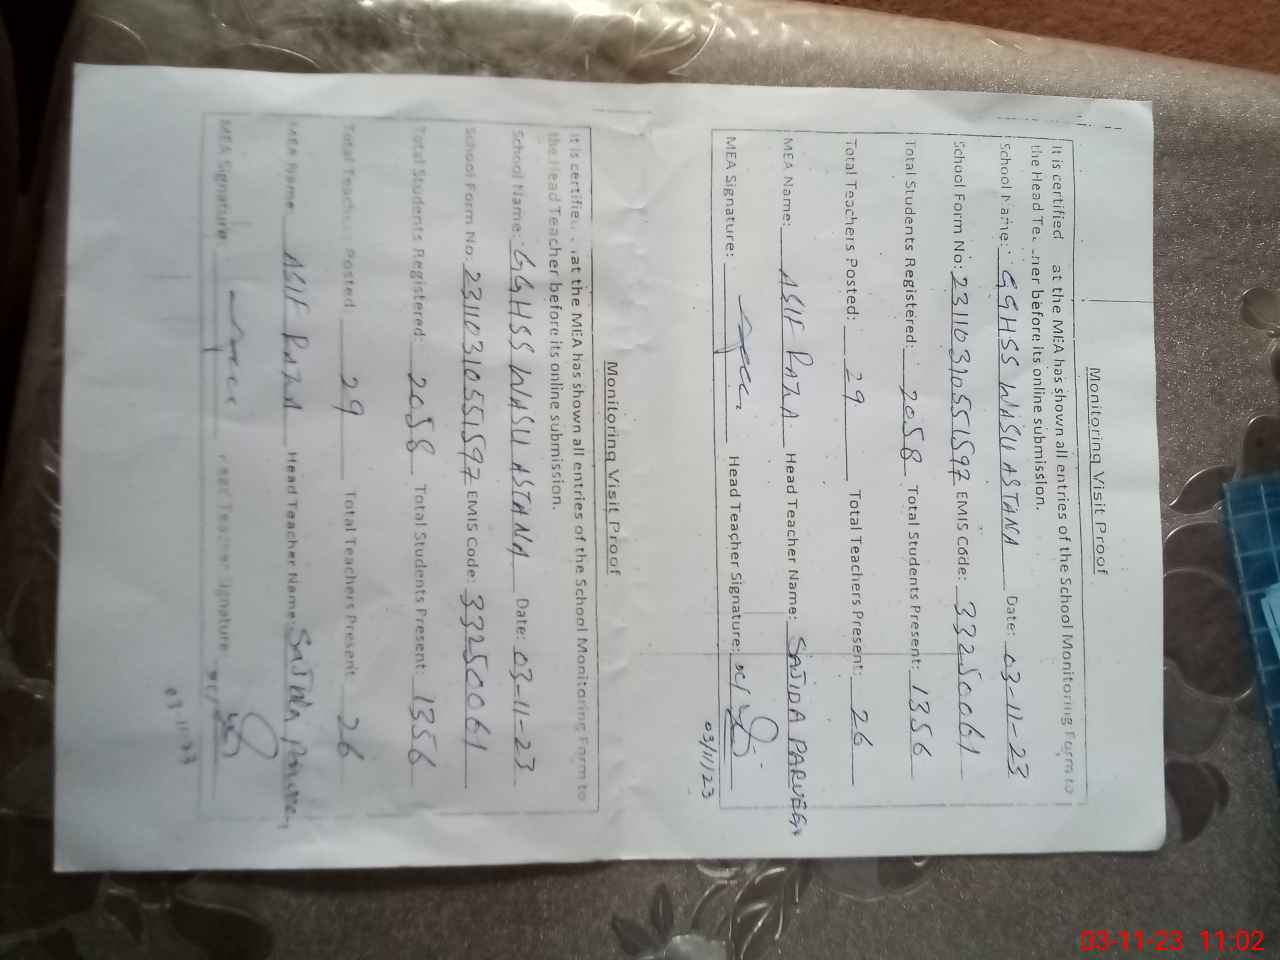 Monitoring Visit Proof
It is certified at the MEA has shown all entries of the School Monitoring Form to
the Head Te ner before its online submission.
School Name: GGHSS WASU ASTANA Date: 03-11-23
School Form No: 23110310551597 EMIS Code: 33250061
Total Students Registered: 2058 Total Students Present: 1356
Total Teachers Posted: 29 Total Teachers Present: 26
MEA Name: ASIF RAZA Head Teacher Name: SAJIDA PARVEEN
MEA Signature: Head Teacher Signature:
03/11/23
Monitoring Visit Proof
It is certifie at the MEA has shown all entries of the School Monitoring Form to
the Head Teacher before its online submission.
School Name: GGHSS WASU ASTANA Date: 03-11-23
School Form No: 23110310551597 EMIS Code: 33250061
Total Students Registered: 2058 Total Students Present: 1356
Total Teache Posted 29 Total Teachers Present 26
MEA Name ASIF RAZA Head Teacher Name: Sajida Parveen
MEA Signature Head Teacher Signature
03-11-23
03-11-23 11:02